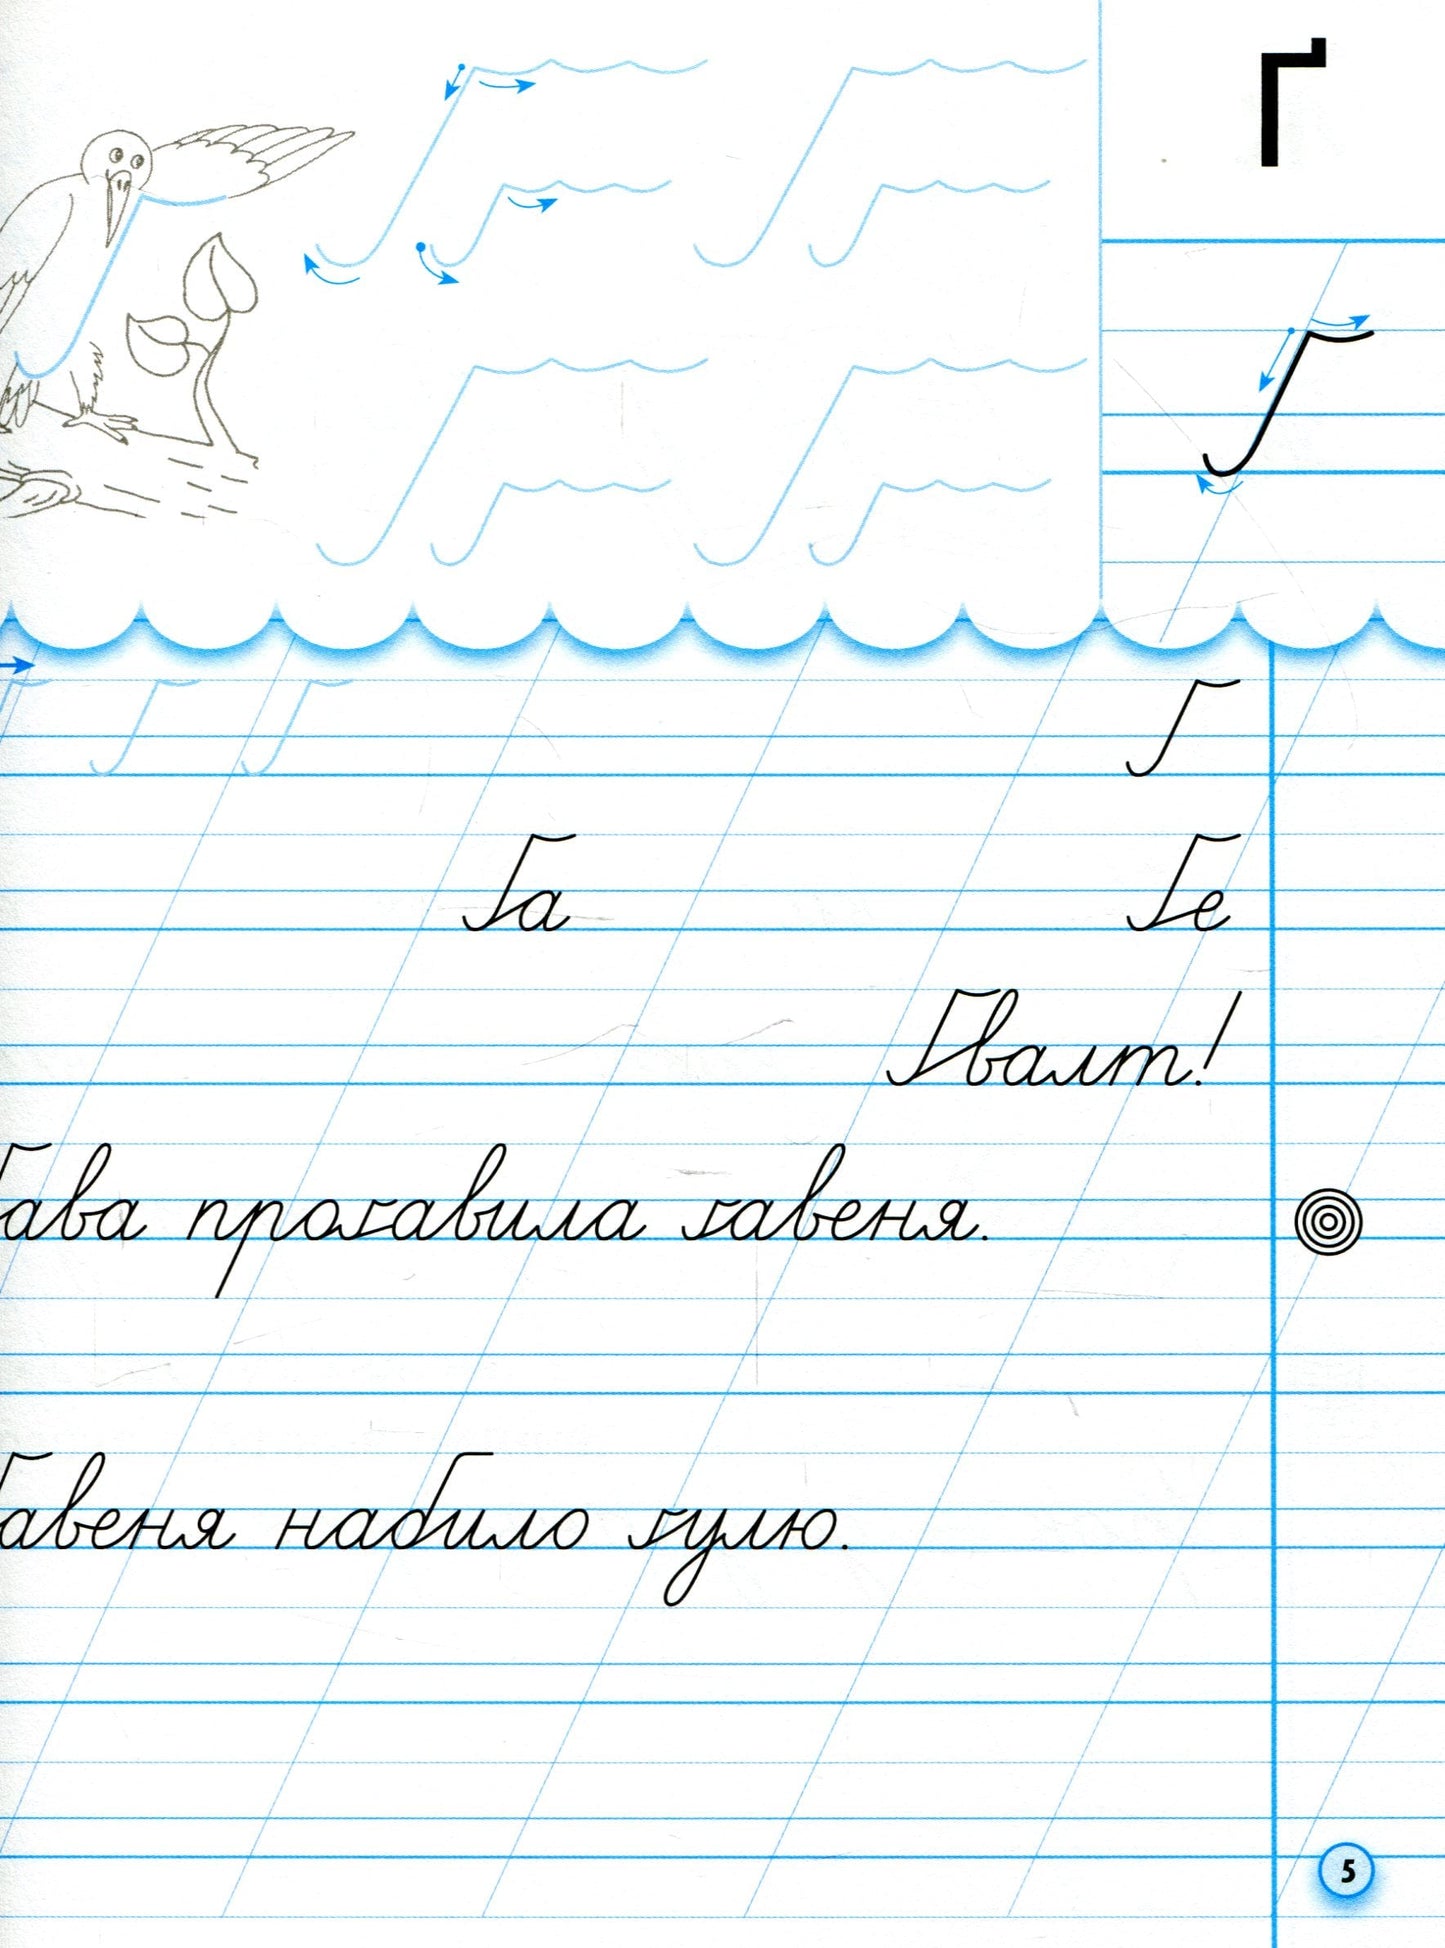 Ґ
Ґ Ґ Ґ Ґ
Ґа Ґе
Ґвалт!
Ґава проґавила ґавеня.
Ґавеня набило ґулю.
5